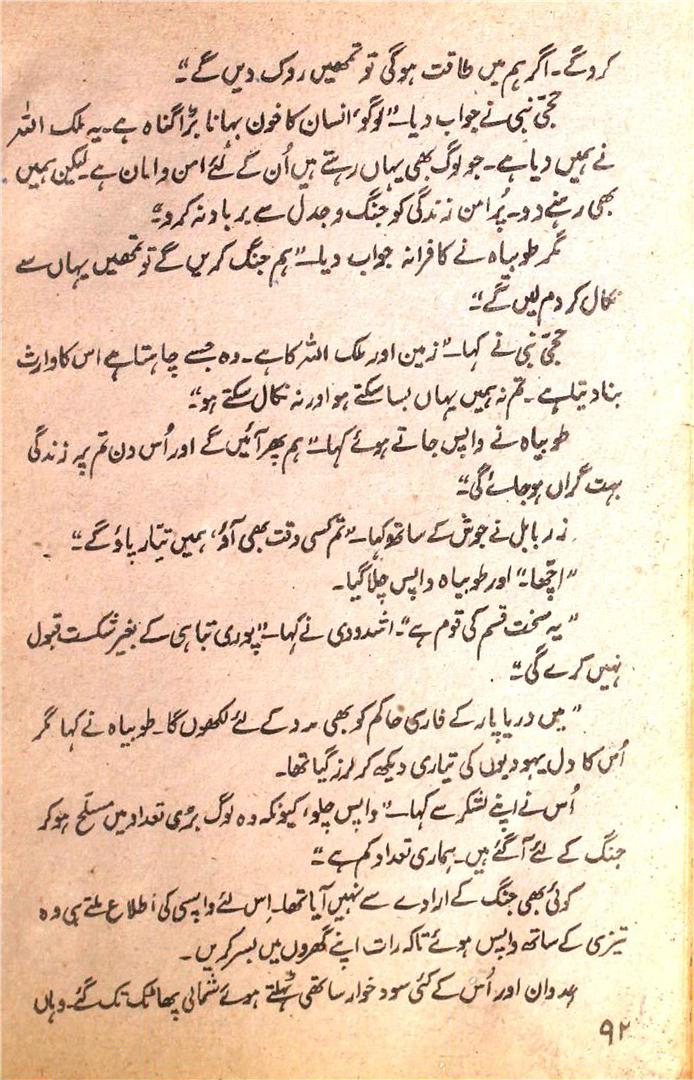 کروگے۔ اگر ہم میں طاقت ہوگی تو تمھیں روک دیں گے“
حجّی نبی نے جواب دیا۔ ”لوگو، انسان کا خون بہانا بڑا گناہ ہے۔ یہ ملک اللہ
نے ہمیں دیا ہے۔ جو لوگ بھی یہاں رہتے ہیں اُن کے لئے امن و امان ہے۔ لیکن ہمیں
بھی رہنے دو۔ پُر امن زندگی کو جنگ و جدل سے برباد نہ کرو“
مگر طوبیاہ نے کافرانہ جواب دیا۔ ”ہم جنگ کریں گے تو تمھیں یہاں سے
نکال کر دم لیں گے“
حجّی نبی نے کہا۔ ”زمین اور ملک اللہ کا ہے۔ وہ جسے چاہتا ہے اس کا وارث
بنا دیتا ہے۔ تم نہ ہمیں یہاں بسا سکتے ہو اور نہ نکال سکتے ہو“
طوبیاہ نے واپس جاتے ہوئے کہا۔ ”ہم پھر آئیں گے اور اُس دن تم پر زندگی
بہت گراں ہو جائے گی“
زربابل نے جوش کے ساتھ کہا۔ ”تم کسی وقت بھی آؤ، ہمیں تیّار پاؤ گے“
”اچّھا۔“ اور طوبیاہ واپس چلا گیا۔
”یہ سخت قسم کی قوم ہے“۔ اشدودی نے کہا۔ ”پوری تباہی کے بغیر شکست قبول
نہیں کرے گی“
”میں دریا پار کے فارسی حاکم کو بھی مدد کے لئے لکھوں گا۔ طوبیاہ نے کہا مگر
اُس کا دل یہودیوں کی تیاری دیکھ کر لرز گیا تھا۔
اُس نے اپنے لشکر سے کہا۔ ”واپس چلو، کیونکہ وہ لوگ بڑی تعداد میں مسلّح ہو کر
جنگ کے لئے آ گئے ہیں۔ ہماری تعداد کم ہے“
کوئی بھی جنگ کے ارادے سے نہیں آیا تھا۔ اِس لئے واپسی کی اطلاع ملتے ہی وہ
تیزی کے ساتھ واپس ہوئے تاکہ رات اپنے گھروں میں بسر کریں۔
ہدوان اور اُس کے کئی سود خوار ساتھی ٹہلتے ہوئے شمالی پھاٹک تک گئے۔ وہاں
۹۲